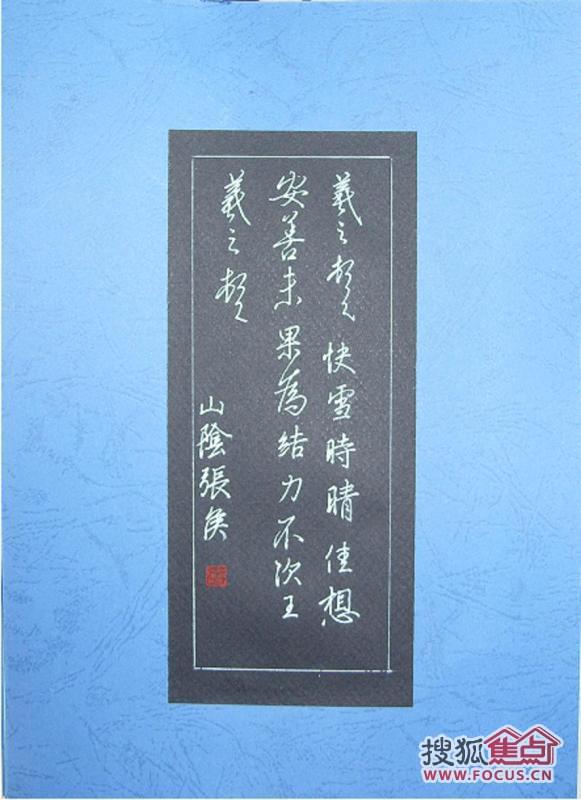 羲之頓首快雪時晴佳想
安善未果為結力不次王
羲之頓首
山陰張侯
搜狐焦点
WWW.FOCUS.CN